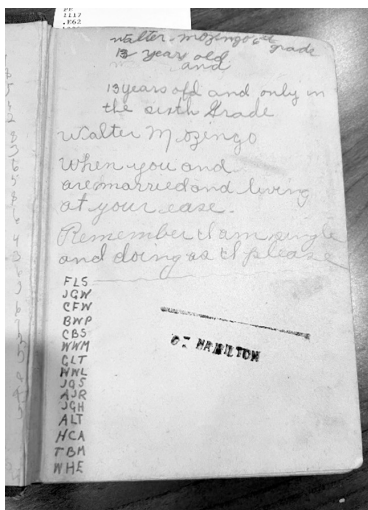 PE
1117
.E62
Walter Mozingo 6th grade
13 year old
and
13 years old and only in
the sixth Grade
Walter Mozingo
When you and
are married and living
at your ease.
Remember I am single
and doing as I please
FLS
JGW
CFW
BWP
CBS
WWM
GLT
WWL
JQS
AJR
JGH
ALT
HCA
TBM
WHE
HAMILTON